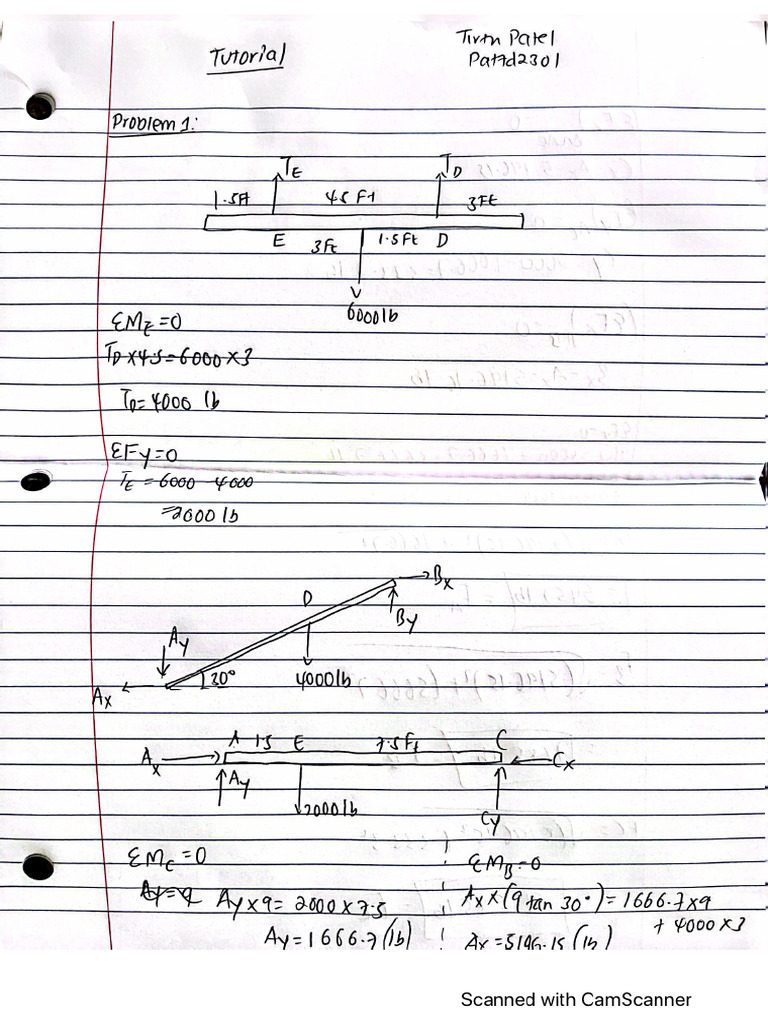 Tutorial
Tirth Patel
Pat7d2301
Problem 1:
T_E
T_D
1.5ft 4.5 Ft 3Ft
E 3Ft 1.5Ft D
6000lb
ΣM_E=0
T_D×4.5=6000×3
T_D=4000 lb
ΣFy=0
T_E=6000-4000
=2000lb
B_x
D
By
Ay
Ax
30°
4000lb
A 1.5 E 7.5Ft C
Ax
Ay
Cx
2000lb
Cy
ΣM_C=0
Ay×9=2000×7.5
Ay=1666.7(lb)
ΣM_B=0
Ax×(9 tan 30°)=1666.7×9
+ 4000×3
Ax=5196.15(lb)
Scanned with CamScanner